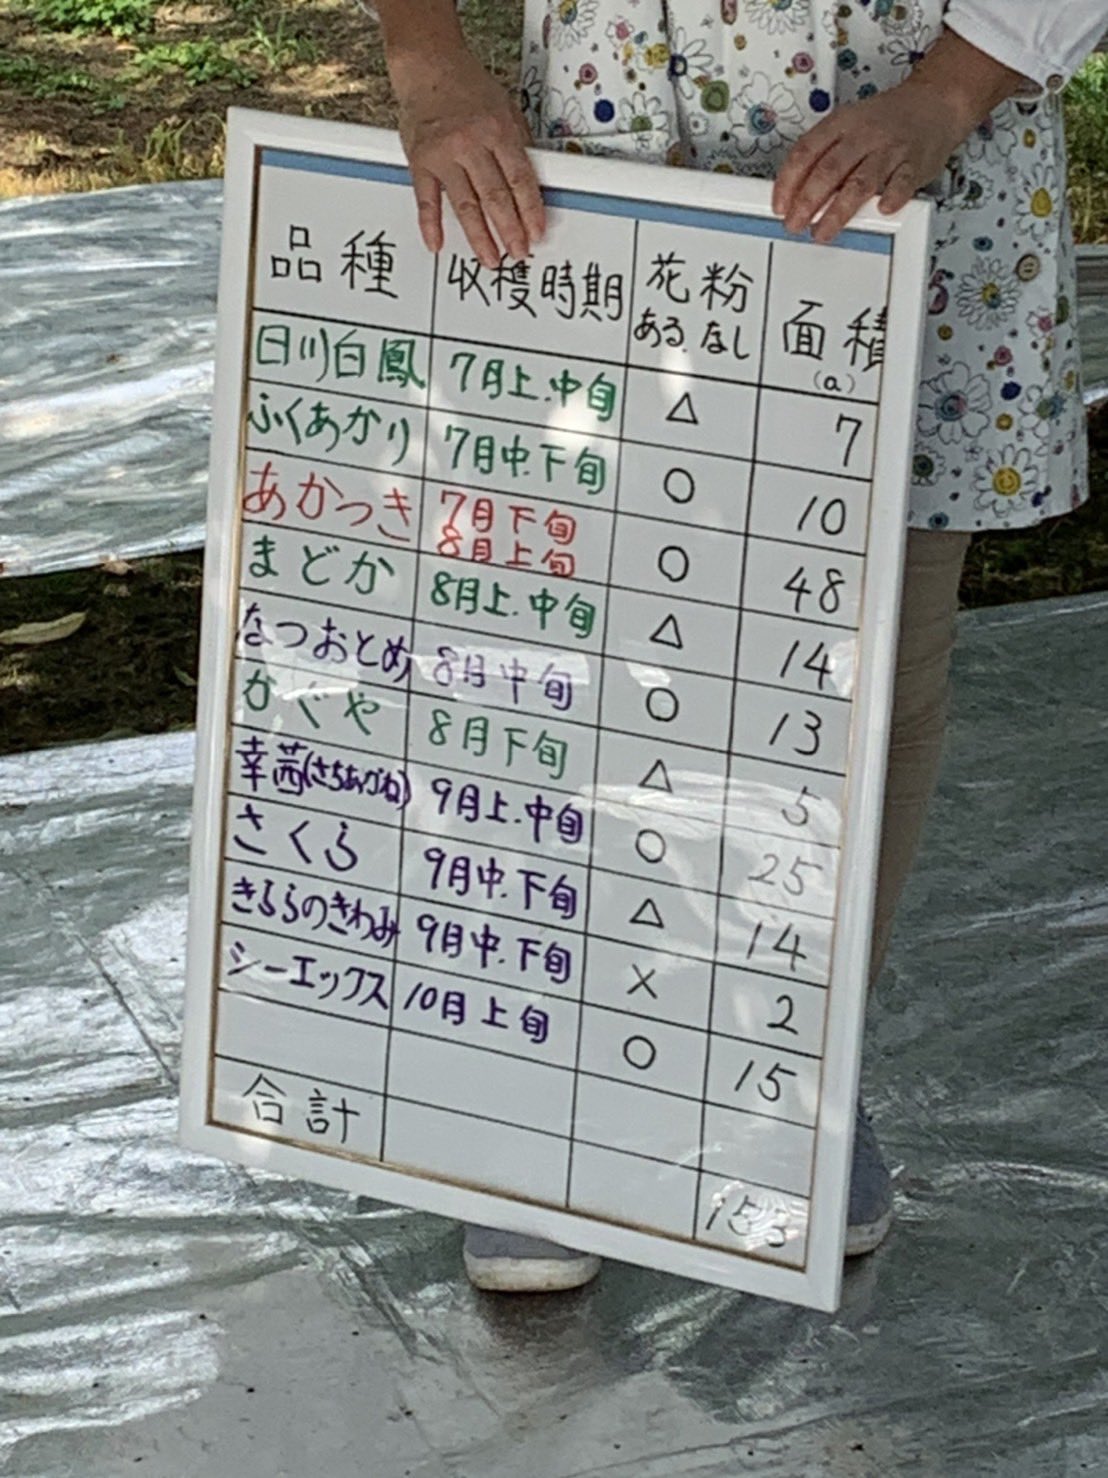 品種 収穫時期 花粉 ある.なし 面積 (a)
日川白鳳 7月上.中旬 △ 7
ふくあかり 7月中.下旬 ○ 10
あかつき 7月下旬 8月上旬 ○ 48
まどか 8月上.中旬 △ 14
なつおとめ 8月中旬 ○ 13
かぐや 8月下旬 △ 5
幸茜(さちあかね) 9月上.中旬 ○ 25
さくら 9月中.下旬 △ 14
きららのきわみ 9月中.下旬 × 2
シーエックス 10月上旬 ○ 15
合計 153